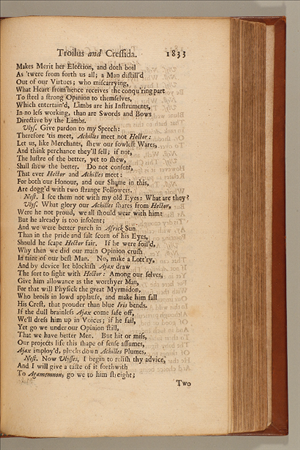 Troilus and Cressida. 1833
Makes Merit her Election, and doth boil
As 'twere from forth us all; a Man distill'd
Out of our Virtues; who miscarrying,
What Heart from hence receives the conqu'ring part
To steel a strong Opinion to themselves,
Which entertain'd, Limbs are his Instruments,
In no less working, than are Swords and Bows
Directive by the Limbs.
Ulys. Give pardon to my Speech:
Therefore 'tis meet, Achilles meet not Hector:
Let us, like Merchants, shew our fowlest Wares,
And think perchance they'll sell; if not,
The lustre of the better, yet to shew,
Shall shew the better. Do not consent,
That ever Hector and Achilles meet:
For both our Honour, and our Shame in this,
Are dogg'd with two strange Followers.
Nest. I see them not with my old Eyes: What are they?
Ulys. What glory our Achilles shares from Hector,
Were he not proud, we all should wear with him:
But he already is too insolent;
And we were better parch in Africk Sun
Than in the pride and salt scorn of his Eyes,
Should he scape Hector fair. If he were foil'd,
Why then we did our main Opinion crush
In taint of our best Man. No, make a Lott'ry,
And by device let blockish Ajax draw
The sort to fight with Hector: Among our selves,
Give him allowance as the worthyer Man,
For that will Physick the great Myrmidon,
Who broils in lowd applause, and make him fall
His Crest, that prouder than blue Iris bends.
If the dull brainless Ajax come safe off,
We'll dress him up in Voices; if he fail,
Yet go we under our Opinion still,
That we have better Men. But hit or miss,
Our projects life this shape of sense assumes,
Ajax imploy'd, plucks down Achilles Plumes.
Nest. Now Ulysses, I begin to relish thy advice,
And I will give a taste of it forthwith
To Agamemnon, go we to him streight;
Two